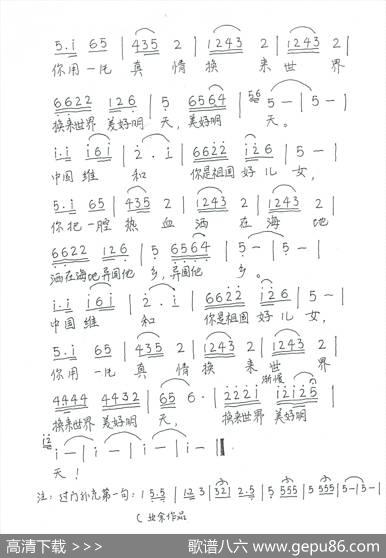 5.i 65 | 435 2 | 1243 2 | 1243 2 |
你用一片 真 情 换 来 世 界
6622 126 | 5 6564 | 56 5 - | 5 - |
换来世界 美好明 天，美好明 天。
i.i i6i | 2 . i | 6622 i26 | 5 - |
中国 维 和 你是祖国 好儿 女，
5.i 65 | 435 2 | 1243 2 | 1243 2 |
你把一腔 热 血 洒 在 海 地
6622 126 | 5 6564 | 5 - | 5 - |
洒在海地异国他 乡，异国他 乡。
i.i i6i | 2 . i | 6622 i26 | 5 - |
中国 维 和 你是祖国 好儿 女，
5.i 65 | 435 2 | 1243 2 | 1243 2 |
你用一片 真 情 换 来 世 界
渐慢
4444 4432 | 65 6 . | 222i 2i25 |
换来世界 美好明 天， 换来世界 美好明
i2 i - | i - | i - | i - ‖
天！
注：过门补充第一句：1 5.5 | 12 3 | 321 2.5 | 5 555 | 5 555 | 5 - | 5 - |
（业余作品
高清下载 >>>
歌谱八六 www.gepu86.com